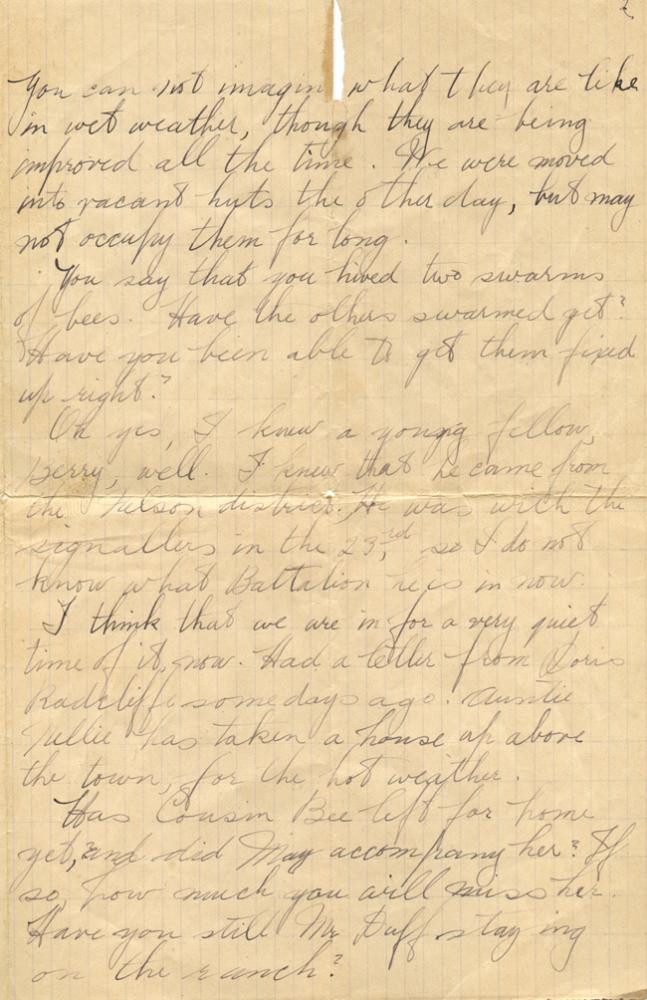 2
You can not imagin what they are like
in wet weather, though they are being
improved all the time. We were moved
into vacant huts the other day, but may
not occupy them for long.
You say that you hived two swarms
of bees. Have the others swarmed yet?
Have you been able to get them fixed
up right?
Oh yes, I knew a young fellow,
Berry, well. I knew that he came from
the Nelson district. He was with the
signallers in the 23rd, so I do not
know what Battalion he is in now.
I think that we are in for a very quiet
time of it, now. Had a letter from Doris
Radcliffe some days ago. Auntie
Nellie has taken a house up above
the town, for the hot weather.
Has Cousin Bee left for home
yet, and did May accompany her? If
so, how much you will miss her.
Have you still Mr Duff staying
on the ranch?